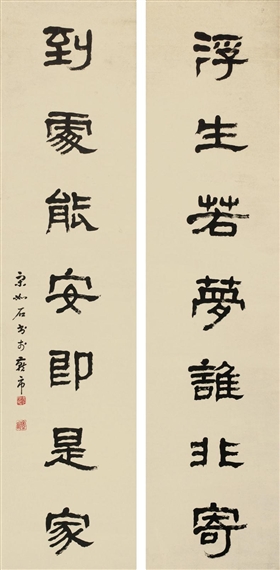 浮生若夢誰非寄
到處能安即是家